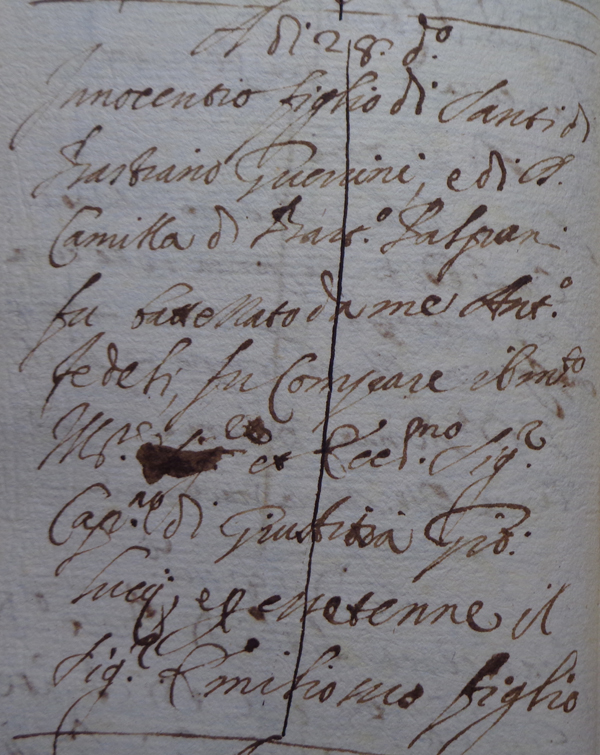 A di 28. d.º
Innocentio figlio di Santi di
Bastiano Guerrini, e di D.
Camilla di Bart.º
fu battezzato da me Ant.º
fedeli, fu Compare il m.to
et Ecc.mo Sig.r
Cap.no di Giustitia Gio:
Lucij, e p esso tenne il
Sig.r Emilio suo figlio